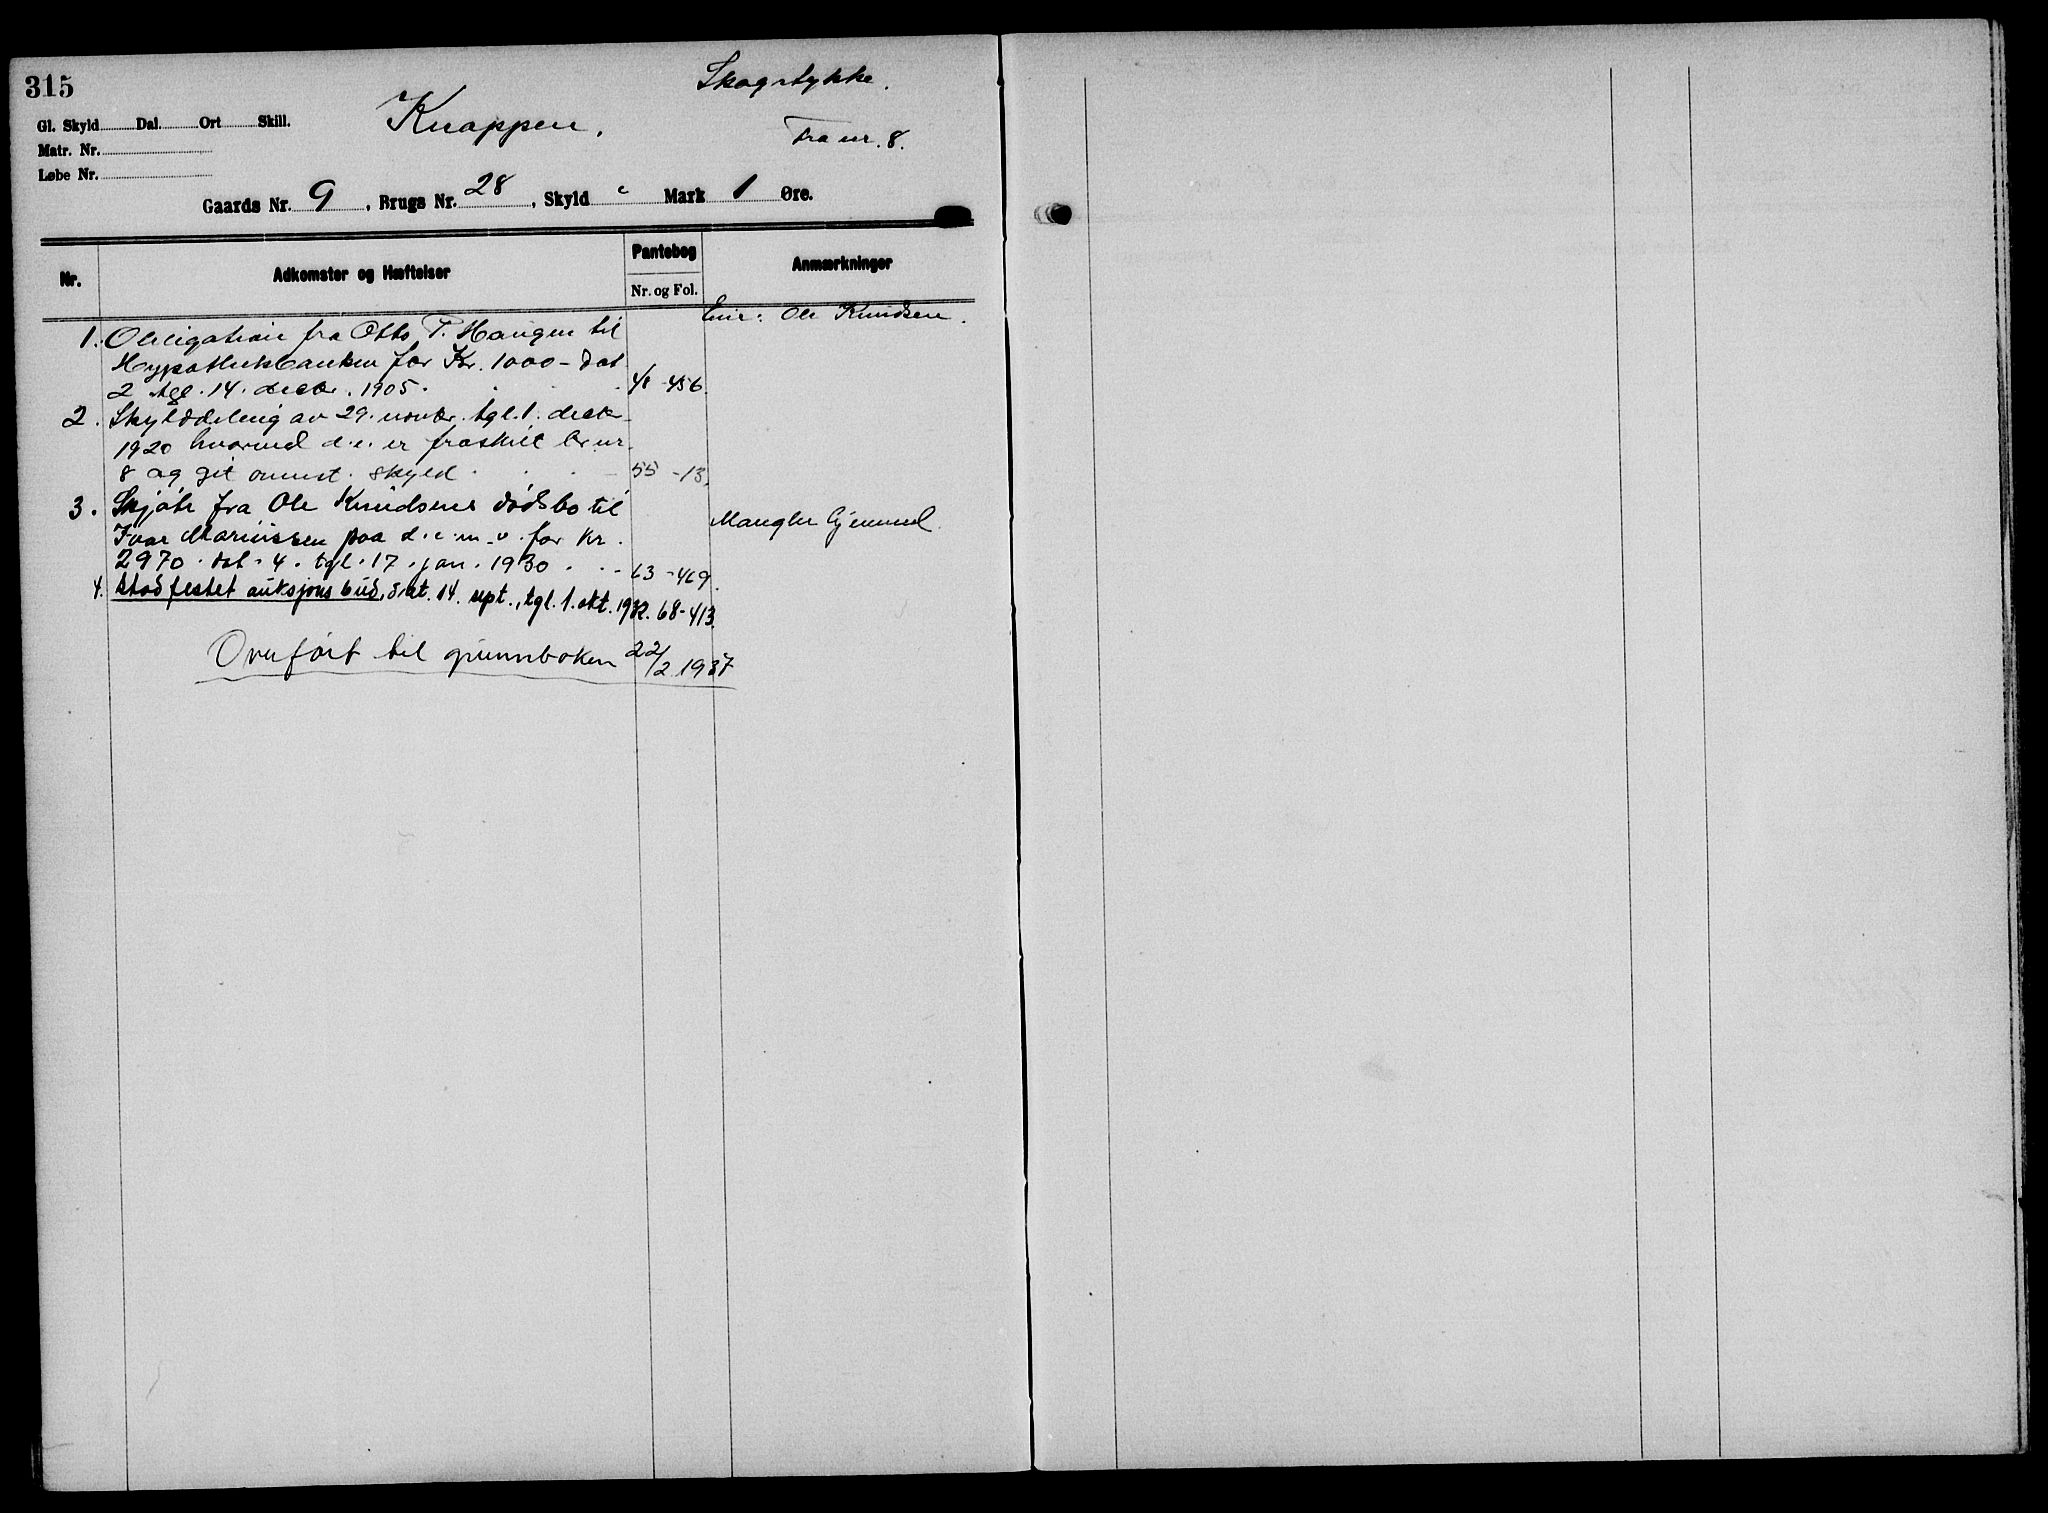 315
Skogstykke.
Knappen.
Fra nr. 8.
Gl. Skyld Dal. Ort Skill.
Matr. Nr.
Løbe Nr.
Gaards Nr. 9, Brugs Nr. 28, Skyld Mark 1 Øre.
Nr. Adkomster og Hæftelser Pantebog Anmærkninger
Nr. og Fol.
Eier: Ole Knudsen.
1. Obligation fra Otto P. Haugen til
Hypothekbanken for Kr. 1000 - dat
2 tgl. 14. decbr. 1905. 48-456.
2. Skylddeling av 29. novbr. tgl. 1. decbr
1920 hvorved d.e. er fraskilt br.nr.
8 og git ovennt. skyld. 55-13.
3. Skjøte fra Ole Knudsens dødsbo til
Ivar Marinssen paa d.e.m.v. for kr.
2970. dat. 4. tgl. 17. jan. 1930. 63-469.
Mangler hjemmel.
4. Stadfestet auksjonsbud, dat. 14. sept., tgl. 1. okt. 1932. 68-413.
Overført til grunnboken 22/2 1937